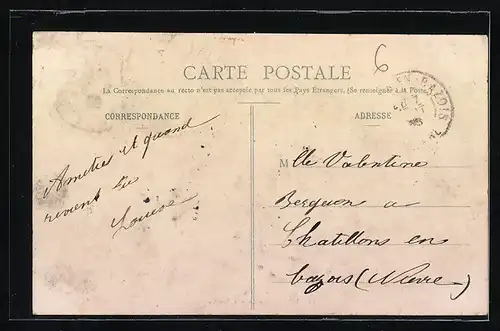 6
CARTE POSTALE
La Correspondance au recto n'est pas acceptée par tous les Pays Étrangers. (Se renseigner à la Poste)
CORRESPONDANCE
ADRESSE
EN-BAZOIS
Amitiés et quand
revient tu
Louise
Mlle Valentine
Berquon a
Chatillons en
bazois (Nievre)